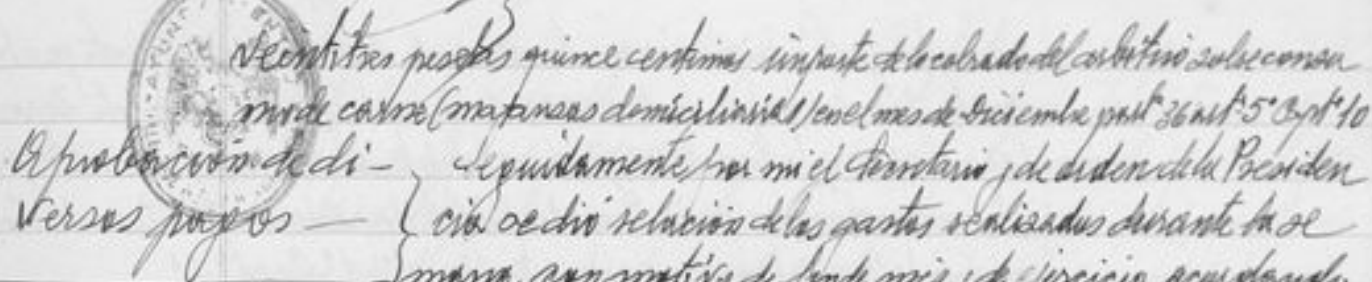 veintitres pesetas quince centimos importe de lo cobrado del arbitrio sobre consu
mo de carne (matanzas domiciliarias) en el mes de Diciembre partª 36 artº 5º Cptº 10
Aprobacion de di-
versos pagos —
Seguidamente por mi el Secretario y de orden de la Presiden
cia se dió relacion de los gastos realizados durante la se
mana con motivo de fin de mes y de ejercicio
AYUNT